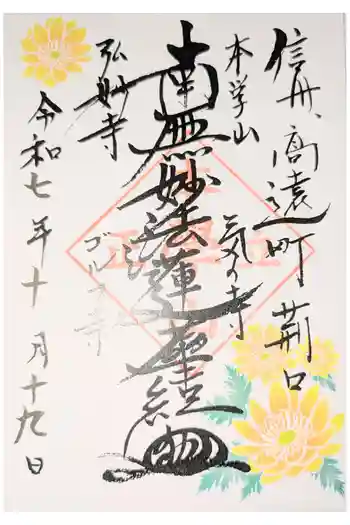 信州、高遠町 荊口
本学山
気の寺
南無妙法蓮華経
弘妙寺
ゴルフ寺
令和七年十月十九日